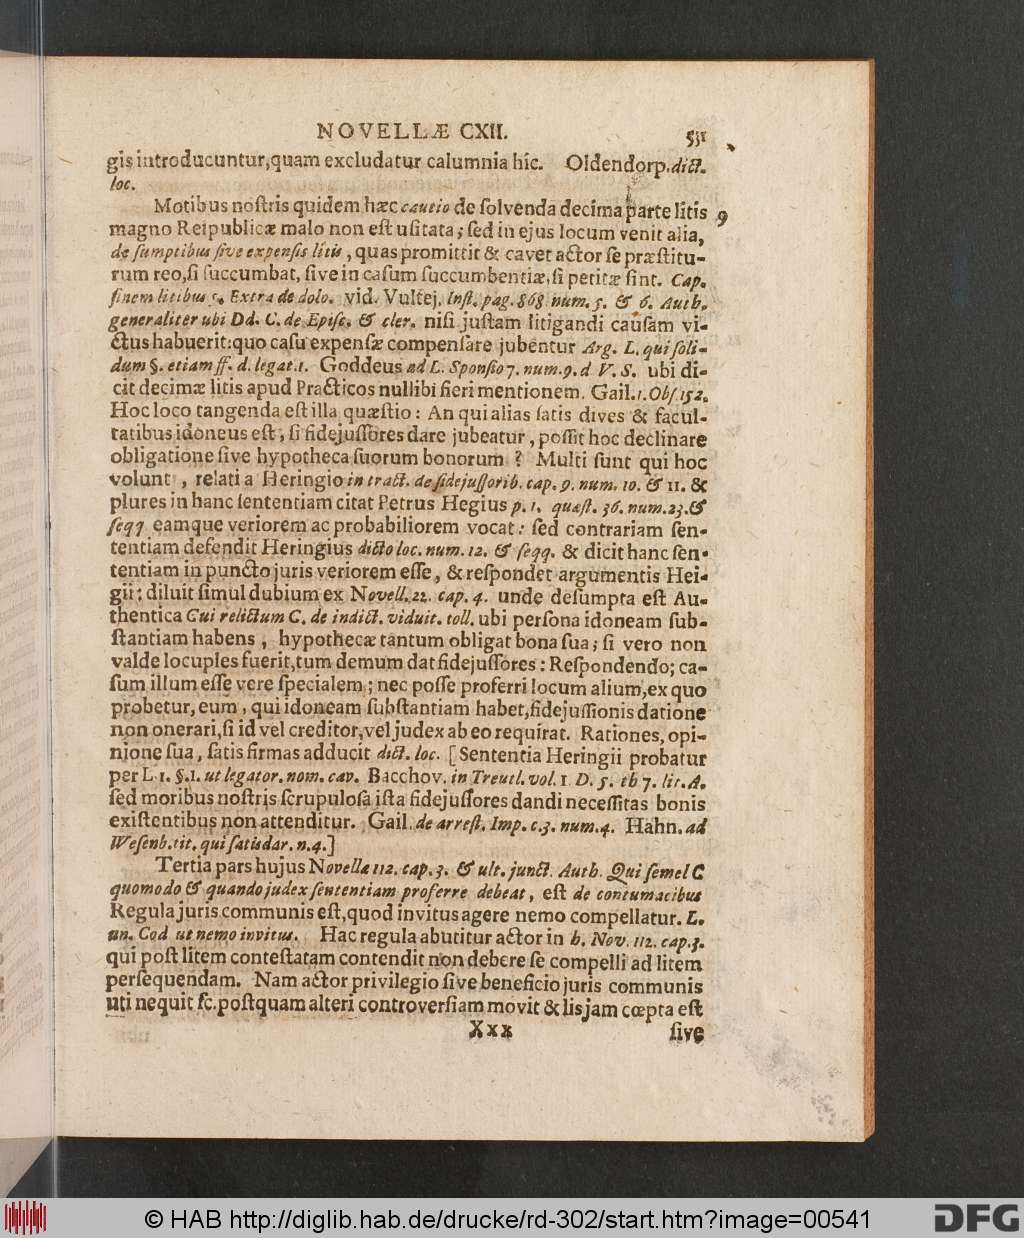 NOVELLÆ CXII. 531
gis introducuntur, quam excludatur calumnia hîc. Oldendorp. dict.
loc.
Motibus noſtris quidem hæc cautio de ſolvenda decima parte litis 9
magno Reipublicæ malo non eſt uſitata; ſed in ejus locum venit alia,
de ſumptibus ſive expenſis litis, quas promittit & cavet actor ſe præſtitu-
rum reo, ſi ſuccumbat, ſive in caſum ſuccumbentiæ, ſi petitæ ſint. Cap.
finem litibus 5. Extra de dolo. vid. Vultej. Inſt. pag. 868 num. 5. & 6. Auth.
generaliter ubi Dd. C. de Epiſc. & cler. niſi juſtam litigandi cauſam vi-
ctus habuerit: quo caſu expenſæ compenſare jubentur Arg. L. qui ſoli-
dum §. etiam ff. d. legat. 1. Goddeus ad L. Sponſio 7. num. 9. d V. S. ubi di-
cit decimæ litis apud Practicos nullibi fieri mentionem. Gail. 1. Obſ 152.
Hoc loco tangenda eſt illa quæſtio: An qui alias ſatis dives & facul-
tatibus idoneus eſt, ſi fidejuſſores dare jubeatur, poſſit hoc declinare
obligatione ſive hypotheca ſuorum bonorum? Multi ſunt qui hoc
volunt, relati a Heringio in tract. de fidejuſſorib. cap. 9. num. 10. & 11. &
plures in hanc ſententiam citat Petrus Hegius p. 1. quæſt. 36. num. 23. &
ſeqq eamque veriorem ac probabiliorem vocat: ſed contrariam ſen-
tentiam defendit Heringius dicto loc. num. 12. & ſeqq. & dicit hanc ſen-
tentiam in puncto juris veriorem eſſe, & reſpondet argumentis Hei-
gii: diluit ſimul dubium ex Novell. 22. cap. 4. unde deſumpta eſt Au-
thentica Cui relictum C. de indict. viduit. toll. ubi perſona idoneam ſub-
ſtantiam habens, hypothecæ tantum obligat bona ſua; ſi vero non
valde locuples fuerit, tum demum dat fidejuſſores: Reſpondendo; ca-
ſum illum eſſe vere ſpecialem; nec poſſe proferri locum alium, ex quo
probetur, eum, qui idoneam ſubſtantiam habet, fidejuſſionis datione
non onerari, ſi id vel creditor, vel judex ab eo requirat. Rationes, opi-
nione ſua, ſatis firmas adducit dict. loc. [Sententia Heringii probatur
per L. 1. §. 1. ut legator. nom. cav. Bacchov. in Treutl. vol. 1 D. 5. th 7. lit. A.
ſed moribus noſtris ſcrupuloſa iſta fidejuſſores dandi neceſſitas bonis
exiſtentibus non attenditur. Gail. de arreſt. Imp. c. 3. num. 4. Hahn. ad
Weſenb. tit. qui ſatisdar. n. 4.]
Tertia pars hujus Novellæ 112. cap. 3. & ult. junct. Auth. Qui ſemel C
quomodo & quando judex ſententiam proferre debeat, eſt de contumacibus
Regula juris communis eſt, quod invitus agere nemo compellatur. L.
un. Cod ut nemo invitus. Hac regula abutitur actor in h. Nov. 112. cap. 3.
qui poſt litem conteſtatam contendit non debere ſe compelli ad litem
perſequendam. Nam actor privilegio ſive beneficio juris communis
uti nequit ſc. poſtquam alteri controverſiam movit & lis jam cœpta eſt
Xxx ſive
© HAB http://diglib.hab.de/drucke/rd-302/start.htm?image=00541
DFG